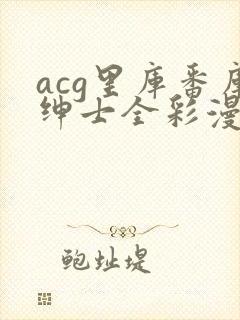 acg里库番库
绅士全彩漫
鲍址堤